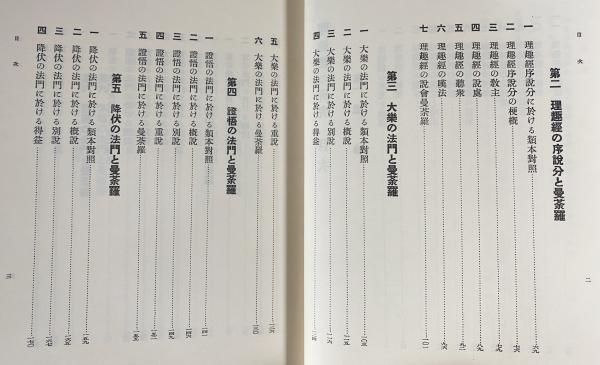 目次
第二 理趣經の序說分と曼荼羅
一 理趣經序說分に於ける類本對照
二 理趣經序說分の梗概
三 理趣經の敎主
四 理趣經の說處
五 理趣經の聽衆
六 理趣經の嘆法
七 理趣經の說會曼荼羅
第三 大樂の法門と曼荼羅
一 大樂の法門に於ける類本對照
二 大樂の法門に於ける概說
三 大樂の法門に於ける別說
四 大樂の法門に於ける得益
二
五 大樂の法門に於ける重說
六 大樂の法門に於ける曼荼羅
第四 證悟の法門と曼荼羅
一 證悟の法門に於ける類本對照
二 證悟の法門に於ける概說
三 證悟の法門に於ける別說
四 證悟の法門に於ける重說
五 證悟の法門に於ける曼荼羅
第五 降伏の法門と曼荼羅
一 降伏の法門に於ける類本對照
二 降伏の法門に於ける概說
三 降伏の法門に於ける別說
四 降伏の法門に於ける得益
目次
三